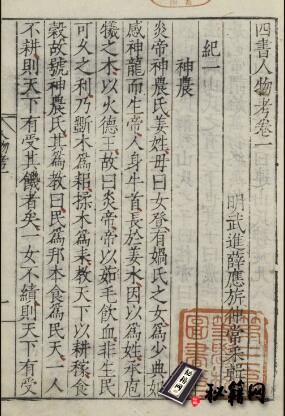 四書人物考卷一
明武進薛應旂仲常采輯
紀一
神農
炎帝神農氏姜姓母曰女登有媧氏之女為少典妃
感神龍而生帝人身牛首長於姜水因以為姓承庖
犧之本以火德王故曰炎帝帝以茹毛飲血非生民
可久之利乃斲木為耜揉木為耒教天下以耕稼食
穀故號神農氏其為教曰民為邦本食為民天一人
不耕則天下有受其饑者矣一女不績則天下有受
人物考
一
秘籍网